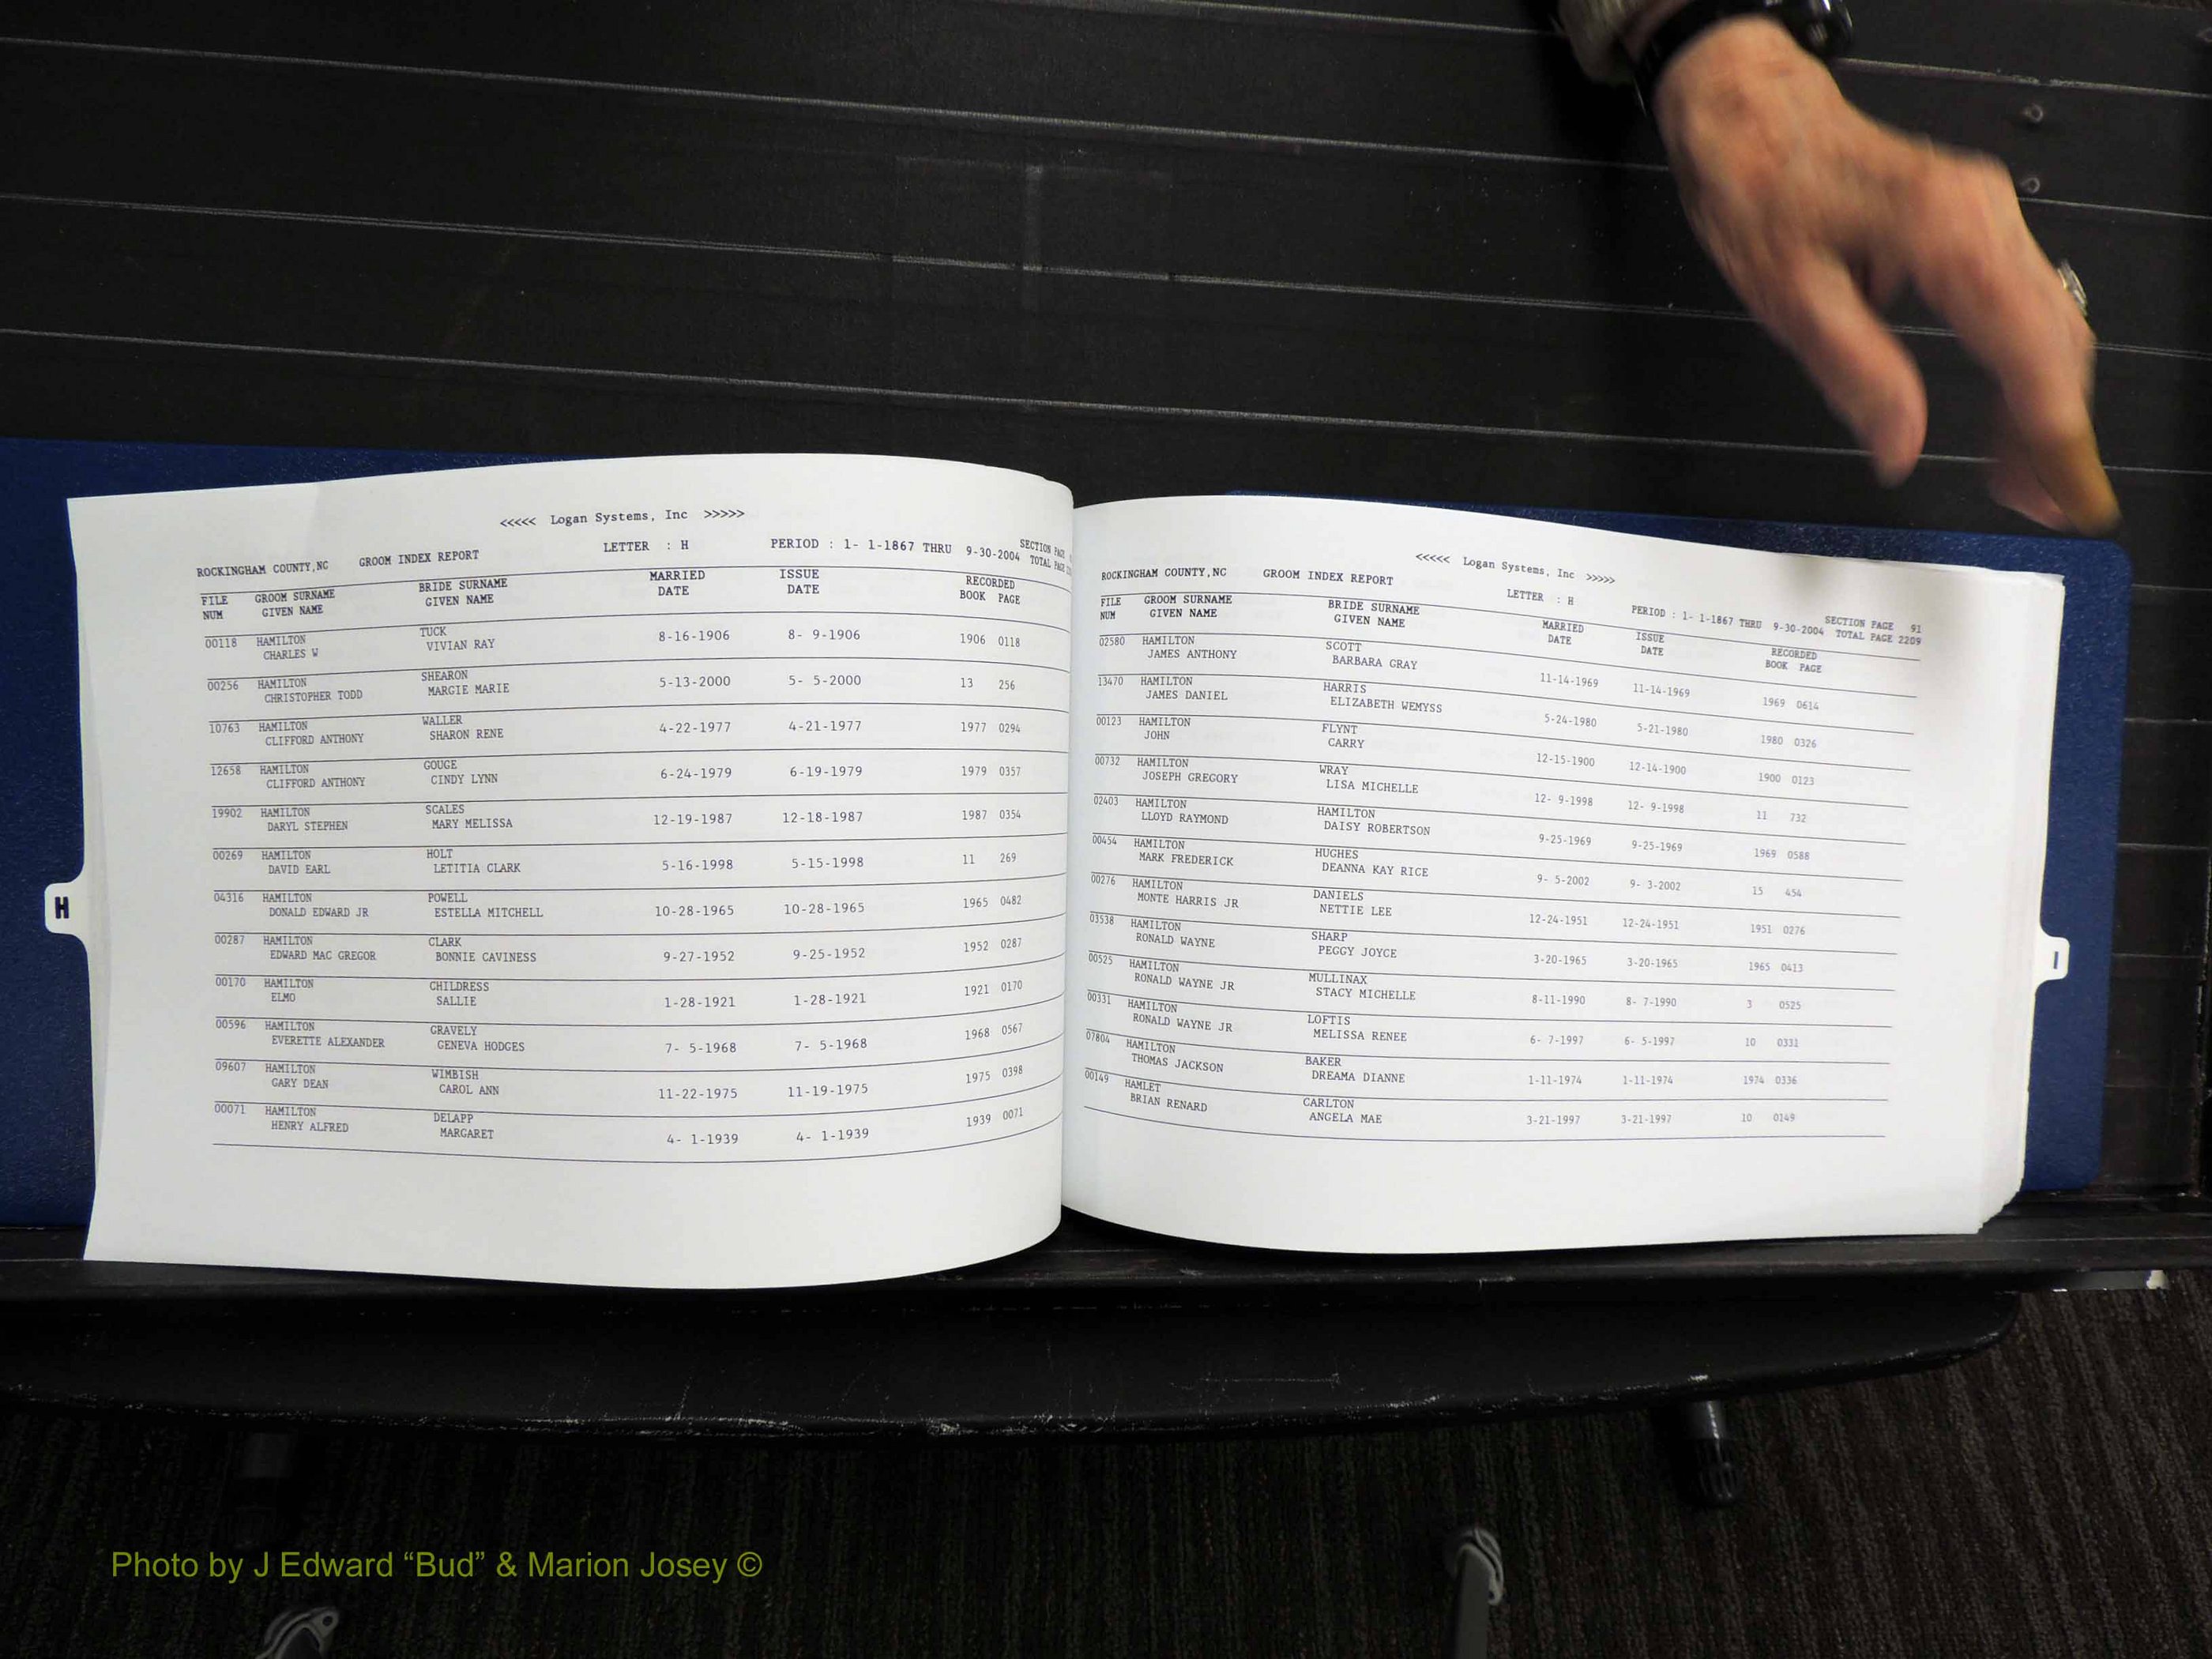 <<<<< Logan Systems, Inc >>>>>
ROCKINGHAM COUNTY,NC GROOM INDEX REPORT LETTER : H PERIOD : 1- 1-1867 THRU 9-30-2004 SECTION PAGE
TOTAL PAGE
FILE GROOM SURNAME BRIDE SURNAME MARRIED ISSUE RECORDED
NUM GIVEN NAME GIVEN NAME DATE DATE BOOK PAGE
00118 HAMILTON TUCK 8-16-1906 8- 9-1906 1906 0118
CHARLES W VIVIAN RAY
00256 HAMILTON SHEARON 5-13-2000 5- 5-2000 13 256
CHRISTOPHER TODD MARGIE MARIE
10763 HAMILTON WALLER 4-22-1977 4-21-1977 1977 0294
CLIFFORD ANTHONY SHARON RENE
12658 HAMILTON GOUGE 6-24-1979 6-19-1979 1979 0357
CLIFFORD ANTHONY CINDY LYNN
19902 HAMILTON SCALES 12-19-1987 12-18-1987 1987 0354
DARYL STEPHEN MARY MELISSA
00269 HAMILTON HOLT 5-16-1998 5-15-1998 11 269
DAVID EARL LETITIA CLARK
04316 HAMILTON POWELL 10-28-1965 10-28-1965 1965 0482
DONALD EDWARD JR ESTELLA MITCHELL
00287 HAMILTON CLARK 9-27-1952 9-25-1952 1952 0287
EDWARD MAC GREGOR BONNIE CAVINESS
00170 HAMILTON CHILDRESS 1-28-1921 1-28-1921 1921 0170
ELMO SALLIE
00596 HAMILTON GRAVELY 7- 5-1968 7- 5-1968 1968 0567
EVERETTE ALEXANDER GENEVA HODGES
09607 HAMILTON WIMBISH 11-22-1975 11-19-1975 1975 0398
GARY DEAN CAROL ANN
00071 HAMILTON DELAPP 4- 1-1939 4- 1-1939 1939 0071
HENRY ALFRED MARGARET
H
<<<<< Logan Systems, Inc >>>>>
ROCKINGHAM COUNTY,NC GROOM INDEX REPORT LETTER : H PERIOD : 1- 1-1867 THRU 9-30-2004 SECTION PAGE 91
TOTAL PAGE 2209
FILE GROOM SURNAME BRIDE SURNAME MARRIED ISSUE RECORDED
NUM GIVEN NAME GIVEN NAME DATE DATE BOOK PAGE
02580 HAMILTON SCOTT 11-14-1969 11-14-1969 1969 0614
JAMES ANTHONY BARBARA GRAY
13470 HAMILTON HARRIS 5-24-1980 5-21-1980 1980 0326
JAMES DANIEL ELIZABETH WEMYSS
00123 HAMILTON FLYNT 12-15-1900 12-14-1900 1900 0123
JOHN CARRY
00732 HAMILTON WRAY 12- 9-1998 12- 9-1998 11 732
JOSEPH GREGORY LISA MICHELLE
02403 HAMILTON HAMILTON 9-25-1969 9-25-1969 1969 0588
LLOYD RAYMOND DAISY ROBERTSON
00454 HAMILTON HUGHES 9- 5-2002 9- 3-2002 15 454
MARK FREDERICK DEANNA KAY RICE
00276 HAMILTON DANIELS 12-24-1951 12-24-1951 1951 0276
MONTE HARRIS JR NETTIE LEE
03538 HAMILTON SHARP 3-20-1965 3-20-1965 1965 0413
RONALD WAYNE PEGGY JOYCE
00525 HAMILTON MULLINAX 8-11-1990 8- 7-1990 3 0525
RONALD WAYNE JR STACY MICHELLE
00331 HAMILTON LOFTIS 6- 7-1997 6- 5-1997 10 0331
RONALD WAYNE JR MELISSA RENEE
07804 HAMILTON BAKER 1-11-1974 1-11-1974 1974 0336
THOMAS JACKSON DREAMA DIANNE
00149 HAMLET CARLTON 3-21-1997 3-21-1997 10 0149
BRIAN RENARD ANGELA MAE
I
Photo by J Edward “Bud” & Marion Josey ©